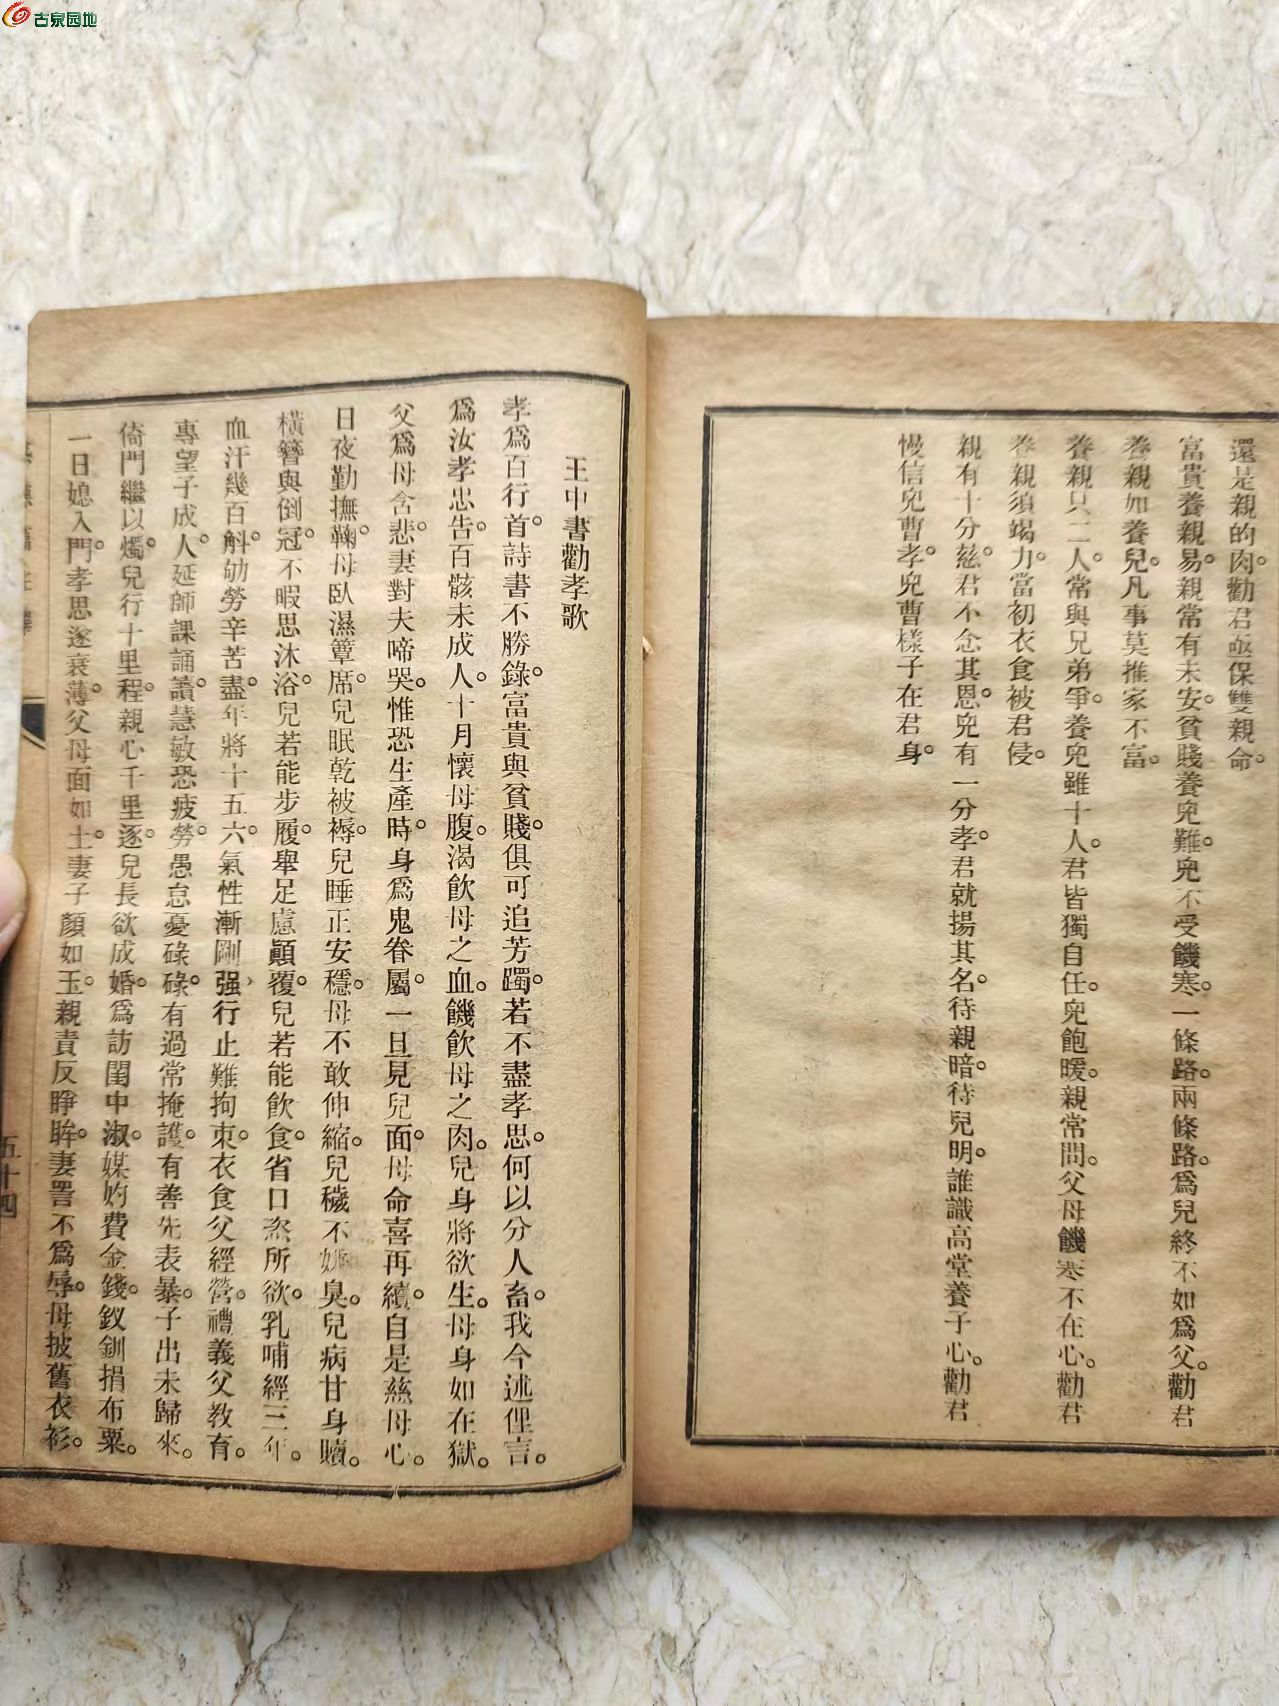 古泉园地
還是親的肉。勸君亟保雙親命。
富貴養親易。親常有未安。貧賤養兒難。兒不受饑寒。一條路。兩條路。為兒終不如為父。勸君
養親如養兒。凡事莫推家不富。
養親只二人。常與兄弟爭。養兒雖十人。君皆獨自任。兒飽暖。親常問。父母饑寒不在心。勸君
養親須竭力。當初衣食被君侵。
親有十分慈。君不念其恩。兒有一分孝。君就揚其名。待親暗。待兒明。誰識高堂養子心。勸君
慢信兒曹孝。兒曹樣子在君身。
王中書勸孝歌
孝為百行首。詩書不勝錄。富貴與貧賤。俱可追芳躅。若不盡孝思。何以分人畜。我今述俚言。
為汝孝忠告。百骸未成人。十月懷母腹。渴飲母之血。饑飲母之肉。兒身將欲生。母身如在獄。
父為母含悲。妻對夫啼哭。惟恐生產時。身為鬼眷屬。一旦見兒面。母命喜再續。自是慈母心。
日夜勤撫鞠。母臥濕簟席。兒眠乾被褥。兒睡正安穩。母不敢伸縮。兒穢不嫌臭。兒病甘身贖。
橫簪與倒冠。不暇思沐浴。兒若能步履。舉足慮顛覆。兒若能飲食。省口恣所欲。乳哺經三年。
血汗幾百斛。劬勞辛苦盡。年將十五六。氣性漸剛强。行止難拘束。衣食父經營。禮義父教育。
專望子成人。延師課誦讀。慧敏恐疲勞。愚怠憂碌碌。有過常掩護。有善先表暴。子出未歸來。
倚門繼以燭。兒行十里程。親心千里逐。兒長欲成婚。為訪閨中淑。媒妁費金錢。釵釧捐布粟。
一日媳入門。孝思遂衰薄。父母面如土。妻子顏如玉。親責反睜眸。妻詈不為辱。母披舊衣衫。
五十四